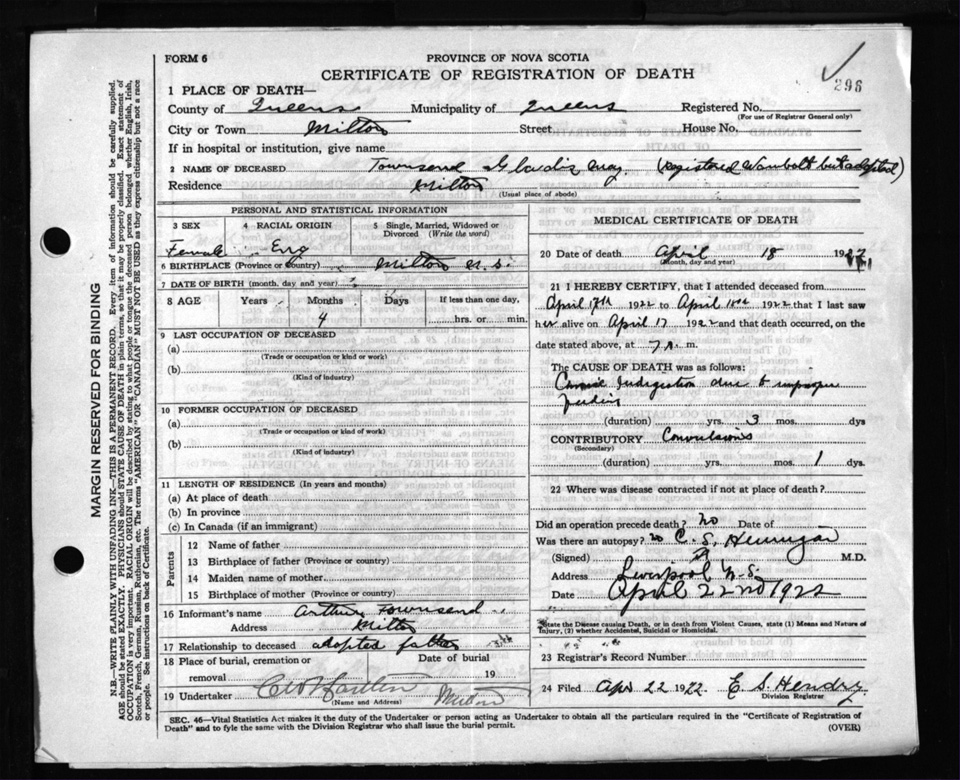 FORM 6
PROVINCE OF NOVA SCOTIA
CERTIFICATE OF REGISTRATION OF DEATH
296
1 PLACE OF DEATH—
County of Queens Municipality of Queens Registered No.
(For use of Registrar General only)
City or Town Milton Street House No.
If in hospital or institution, give name
2 NAME OF DECEASED Townsend Gladis May (Registered Wambolt but adopted)
Residence Milton
(Usual place of abode)
PERSONAL AND STATISTICAL INFORMATION
3 SEX 4 RACIAL ORIGIN 5 Single, Married, Widowed or Divorced (Write the word)
Female Eng
6 BIRTHPLACE (Province or Country) Milton N.S.
7 DATE OF BIRTH (month, day and year)
8 AGE Years Months Days If less than one day,
4 hrs. or min.
9 LAST OCCUPATION OF DECEASED
(a)
(Trade or occupation or kind of work)
(b)
(Kind of industry)
10 FORMER OCCUPATION OF DECEASED
(a)
(Trade or occupation or kind of work)
(b)
(Kind of industry)
11 LENGTH OF RESIDENCE (In years and months)
(a) At place of death
(b) In province
(c) In Canada (if an immigrant)
Parents
12 Name of father
13 Birthplace of father (Province or country)
14 Maiden name of mother
15 Birthplace of mother (Province or country)
16 Informant's name Arthur Townsend
Address Milton
17 Relationship to deceased adopted father
18 Place of burial, cremation or removal Date of burial
19
19 Undertaker Milton
(Name and Address)
MEDICAL CERTIFICATE OF DEATH
20 Date of death April 18 1922
(Month, day and year)
21 I HEREBY CERTIFY, that I attended deceased from
April 17th 1922 to April 1922 that I last saw
her alive on April 17 1922 and that death occurred, on the
date stated above, at 7 m.
The CAUSE OF DEATH was as follows:
Indigestion due to improper
feeding
(duration) yrs. 3 mos. dys
CONTRIBUTORY Convulsions
(Secondary)
(duration) yrs. mos. 1 dys.
22 Where was disease contracted if not at place of death?
Did an operation precede death? no Date of
Was there an autopsy? no
(Signed) C. S. Hennigar M.D.
Address Liverpool N.S.
Date April 22nd 1922
State the Disease causing Death, or in death from Violent Causes, state (1) Means and Nature of
Injury, (2) whether Accidental, Suicidal or Homicidal.
23 Registrar's Record Number
24 Filed Apr 22 1922 E. S. Hendry
Division Registrar
SEC. 46—Vital Statistics Act makes it the duty of the Undertaker or person acting as Undertaker to obtain all the particulars required in the "Certificate of Registration of
Death" and to fyle the same with the Division Registrar who shall issue the burial permit.
(OVER)
MARGIN RESERVED FOR BINDING
N.B.—WRITE PLAINLY WITH UNFADING INK—THIS IS A PERMANENT RECORD. Every item of information should be carefully supplied.
AGE should be stated EXACTLY. PHYSICIANS should STATE CAUSE OF DEATH in plain terms, so that it may be properly classified. Exact statement of
OCCUPATION is very important. RACIAL ORIGIN will be described by stating to what people or tongue the deceased person belonged whether English, Irish,
Scotch, French, German, Russian, Ruthenian, etc. The terms "AMERICAN" OR "CANADIAN" MUST NOT BE USED as they express citizenship but not a race
or people. See instructions on back of Certificate.